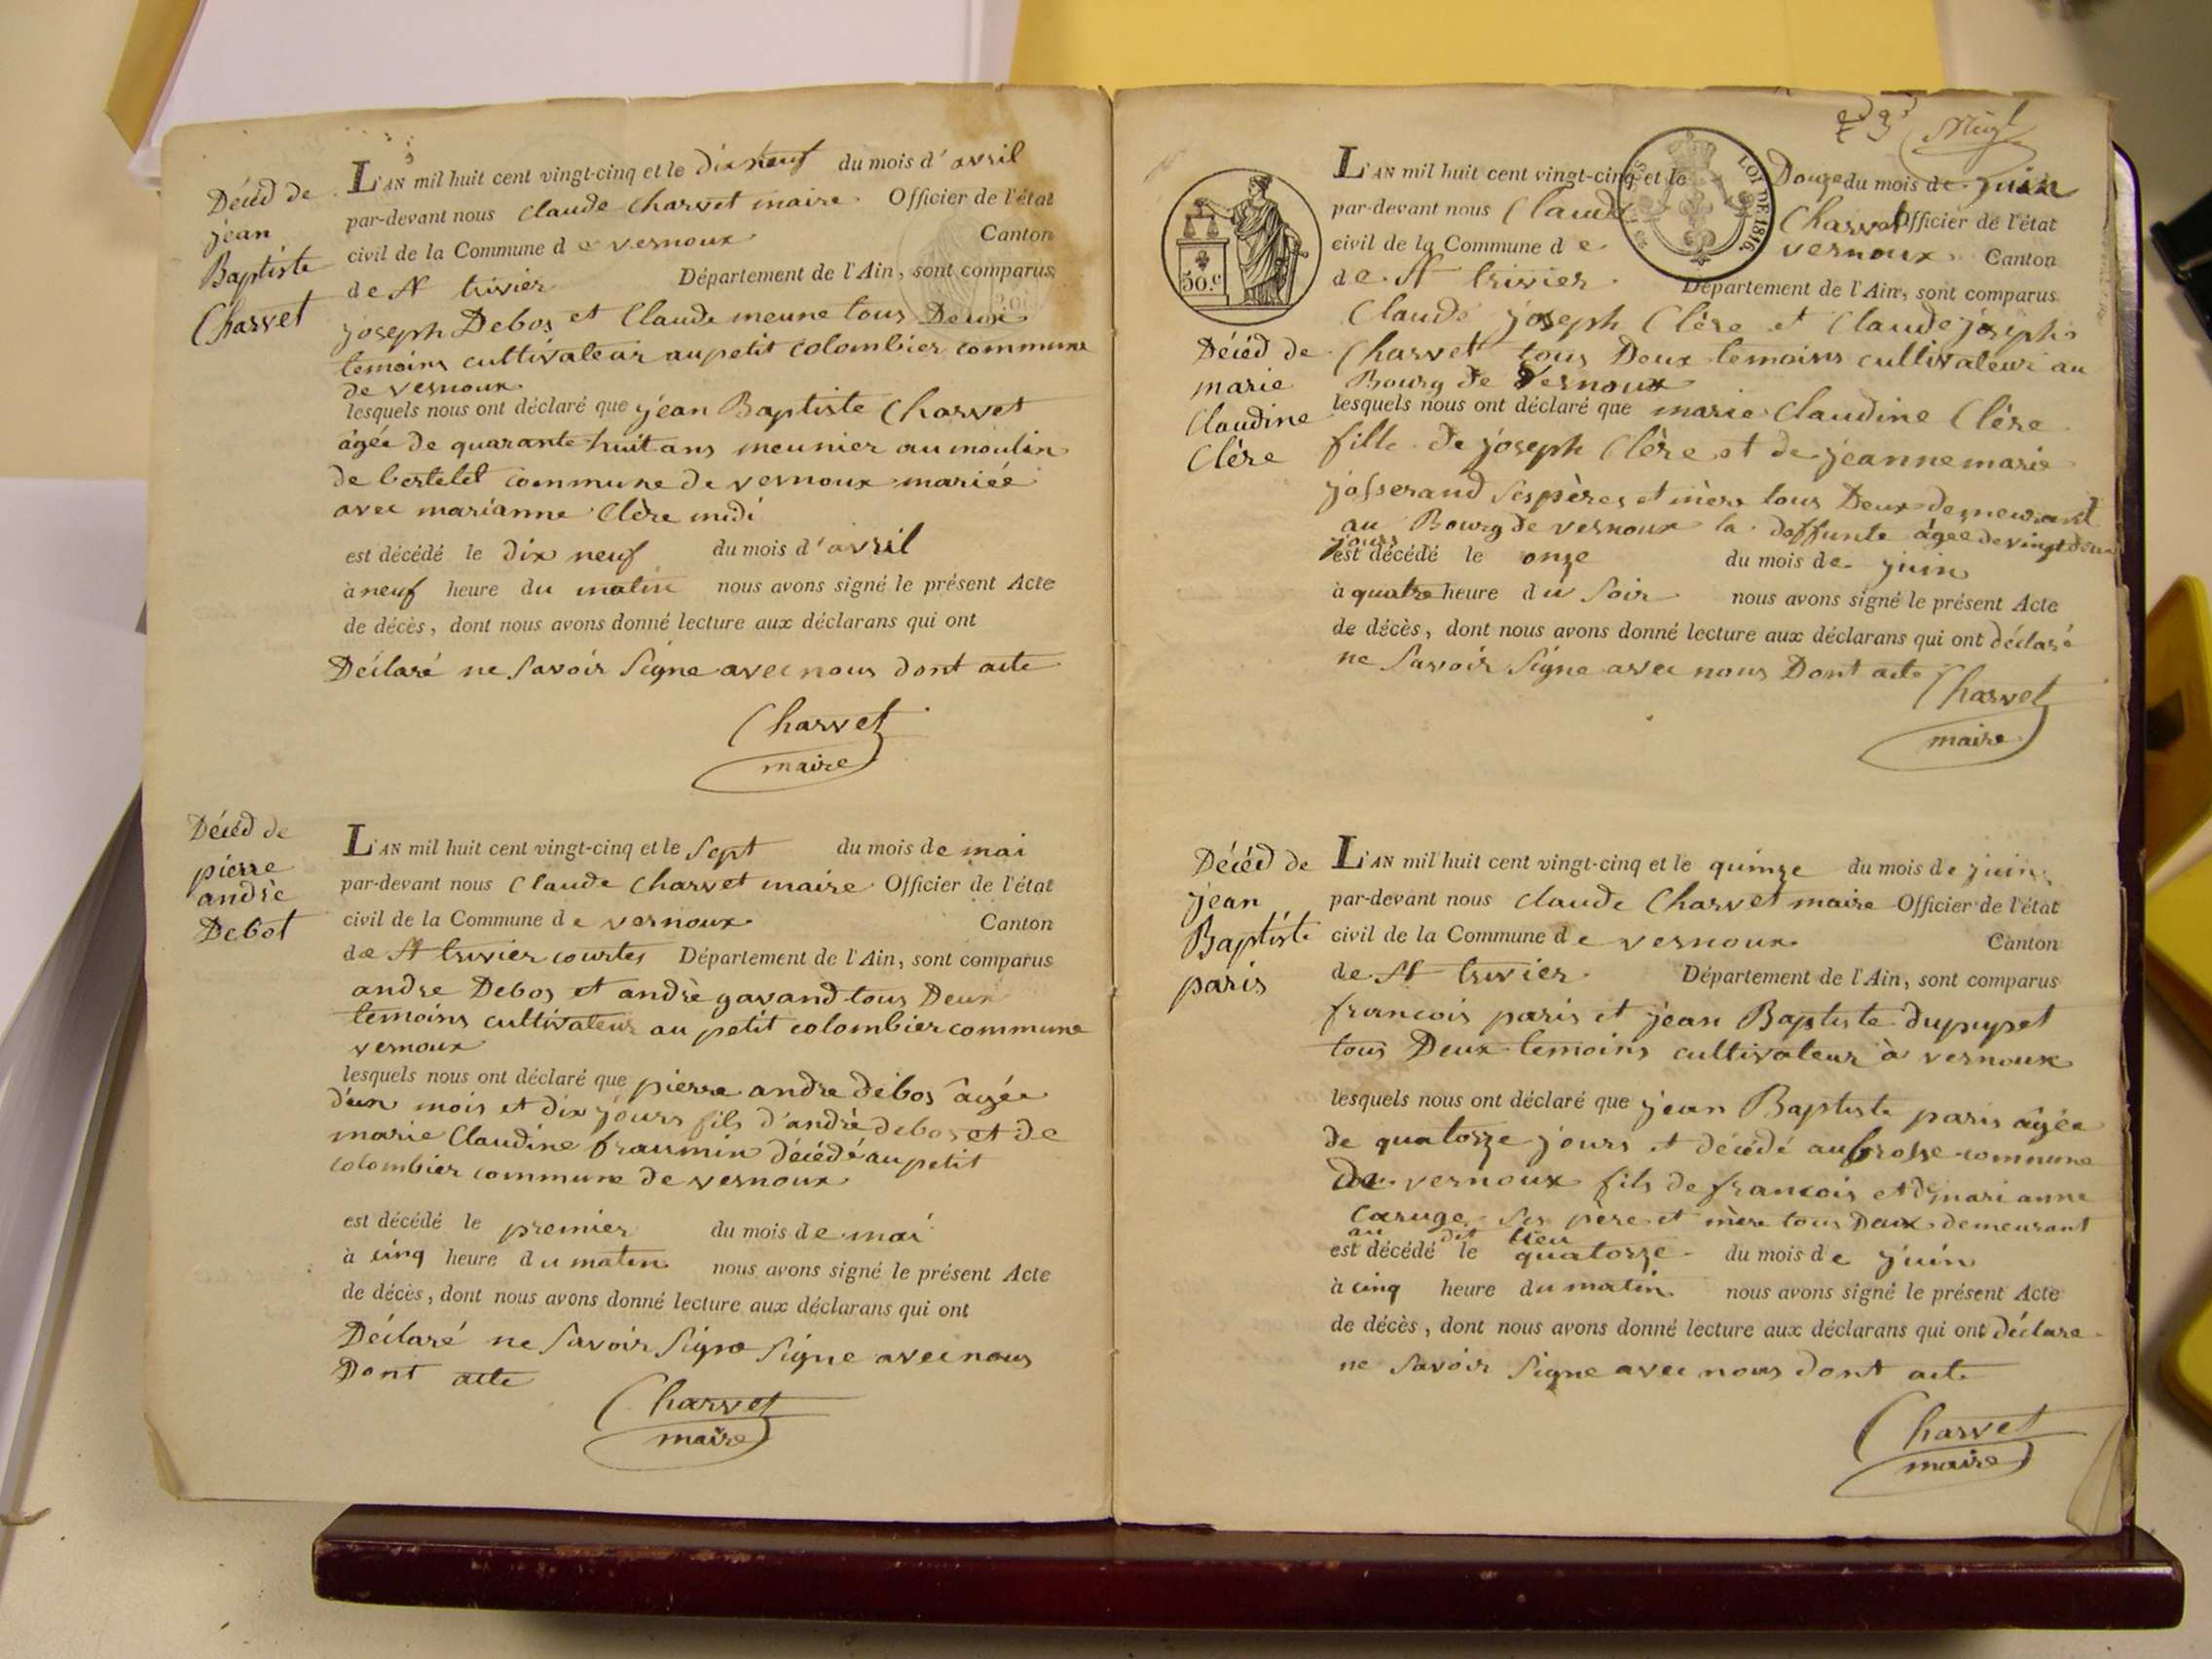 Décéd de
jean
Baptiste
Charvet
L'AN mil huit cent vingt-cinq et le dix neuf du mois d'avril
par-devant nous Claude Charvet maire Officier de l'état
civil de la Commune de vernoux Canton
de St trivier Département de l'Ain, sont comparus
joseph Debos et Claude meune tous Deux
temoins cultivateur au petit colombier commune
de vernoux
lesquels nous ont déclaré que jean Baptiste Charvet
âgée de quarante huit ans meunier au moulin
de bertelet commune de vernoux mariée
avec marianne Clère midi
est décédé le dix neuf du mois d'avril
à neuf heure du matin nous avons signé le présent Acte
de décès, dont nous avons donné lecture aux déclarans qui ont
Déclaré ne savoir signe avec nous dont acte
Charvet
maire
Décéd de
pierre
andrè
Debot
L'AN mil huit cent vingt-cinq et le sept du mois de mai
par-devant nous Claude Charvet maire Officier de l'état
civil de la Commune de vernoux Canton
de St trivier courtes Département de l'Ain, sont comparus
andre Debos et andrè gavand tous Deux
temoins cultivateur au petit colombier commune
vernoux
lesquels nous ont déclaré que pierre andre debos âgée
d'un mois et dix jours fils d'andrè debos et de
marie Claudine fraumin décédé au petit
colombier commune de vernoux
est décédé le premier du mois de mai
à cinq heure du matin nous avons signé le présent Acte
de décès, dont nous avons donné lecture aux déclarans qui ont
Déclaré ne savoir signe signe avec nous
Dont acte
Charvet
maire
50.c
LOI DE 1816.
L'AN mil huit cent vingt-cinq et le Douze du mois de juin
par-devant nous Claude Charvet Officier de l'état
civil de la Commune de vernoux Canton
de St trivier Département de l'Ain, sont comparus
Claude joseph Clère et Claude joseph
Charvet tous Deux temoins cultivateur au
Bourg de Vernoux
Décéd de
marie
Claudine
Clère
lesquels nous ont déclaré que marie Claudine Clère
fille de joseph Clère et de jeanne marie
josserand ses pères et mère tous Deux demeurant
au Bourg de vernoux la deffunte âgée de vingt deux
jours
est décédé le onze du mois de juin
à quatre heure du soir nous avons signé le présent Acte
de décès, dont nous avons donné lecture aux déclarans qui ont déclaré
ne savoir signe avec nous Dont acte
Charvet
maire
Décéd de
jean
Baptiste
paris
L'AN mil huit cent vingt-cinq et le quinze du mois de juin
par-devant nous Claude Charvet maire Officier de l'état
civil de la Commune de vernoux Canton
de St trivier Département de l'Ain, sont comparus
francois paris et jean Baptiste dupupet
tous Deux temoins cultivateur à vernoux
lesquels nous ont déclaré que jean Baptiste paris âgée
de quatorze jours et décédé au brosse commune
De vernoux fils de francois et de mari anne
Caruge ses père et mère tous Deux demeurant
au dit lieu
est décédé le quatorze du mois de juin
à cinq heure du matin nous avons signé le présent Acte
de décès, dont nous avons donné lecture aux déclarans qui ont déclare
ne savoir signe avec nous dont acte
Charvet
maire